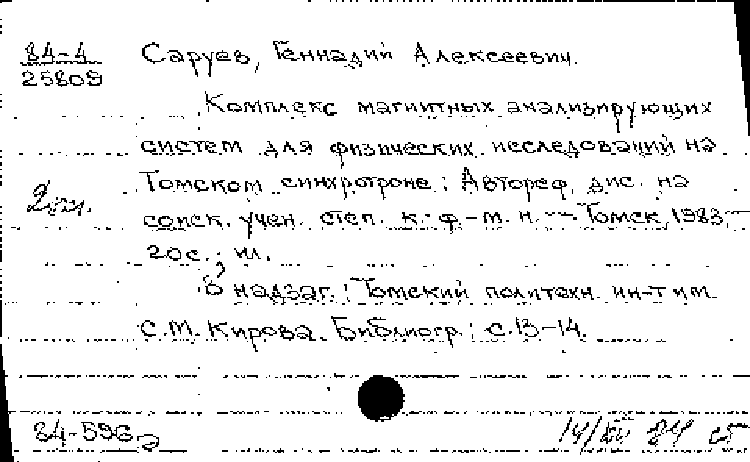 84-4
25809
Саруев, Геннадий Алексеевич.
Комплекс магнитных анализирующих
систем для физических исследований на
Томском синхротроне: Автореф. дис. на
соиск. учен. степ. к. ф.-м. н. -- Томск, 1983.-
20 с.: ил.
2 экз.
В надзаг.: Томский политехн. ин-т им.
С.М. Кирова. Библиогр.: с. 13-14.
84-596
14/XII 84